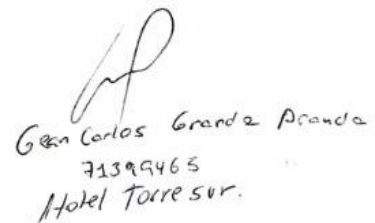 Gean Carlos Granda Aranda
71399465
Hotel Torresur.